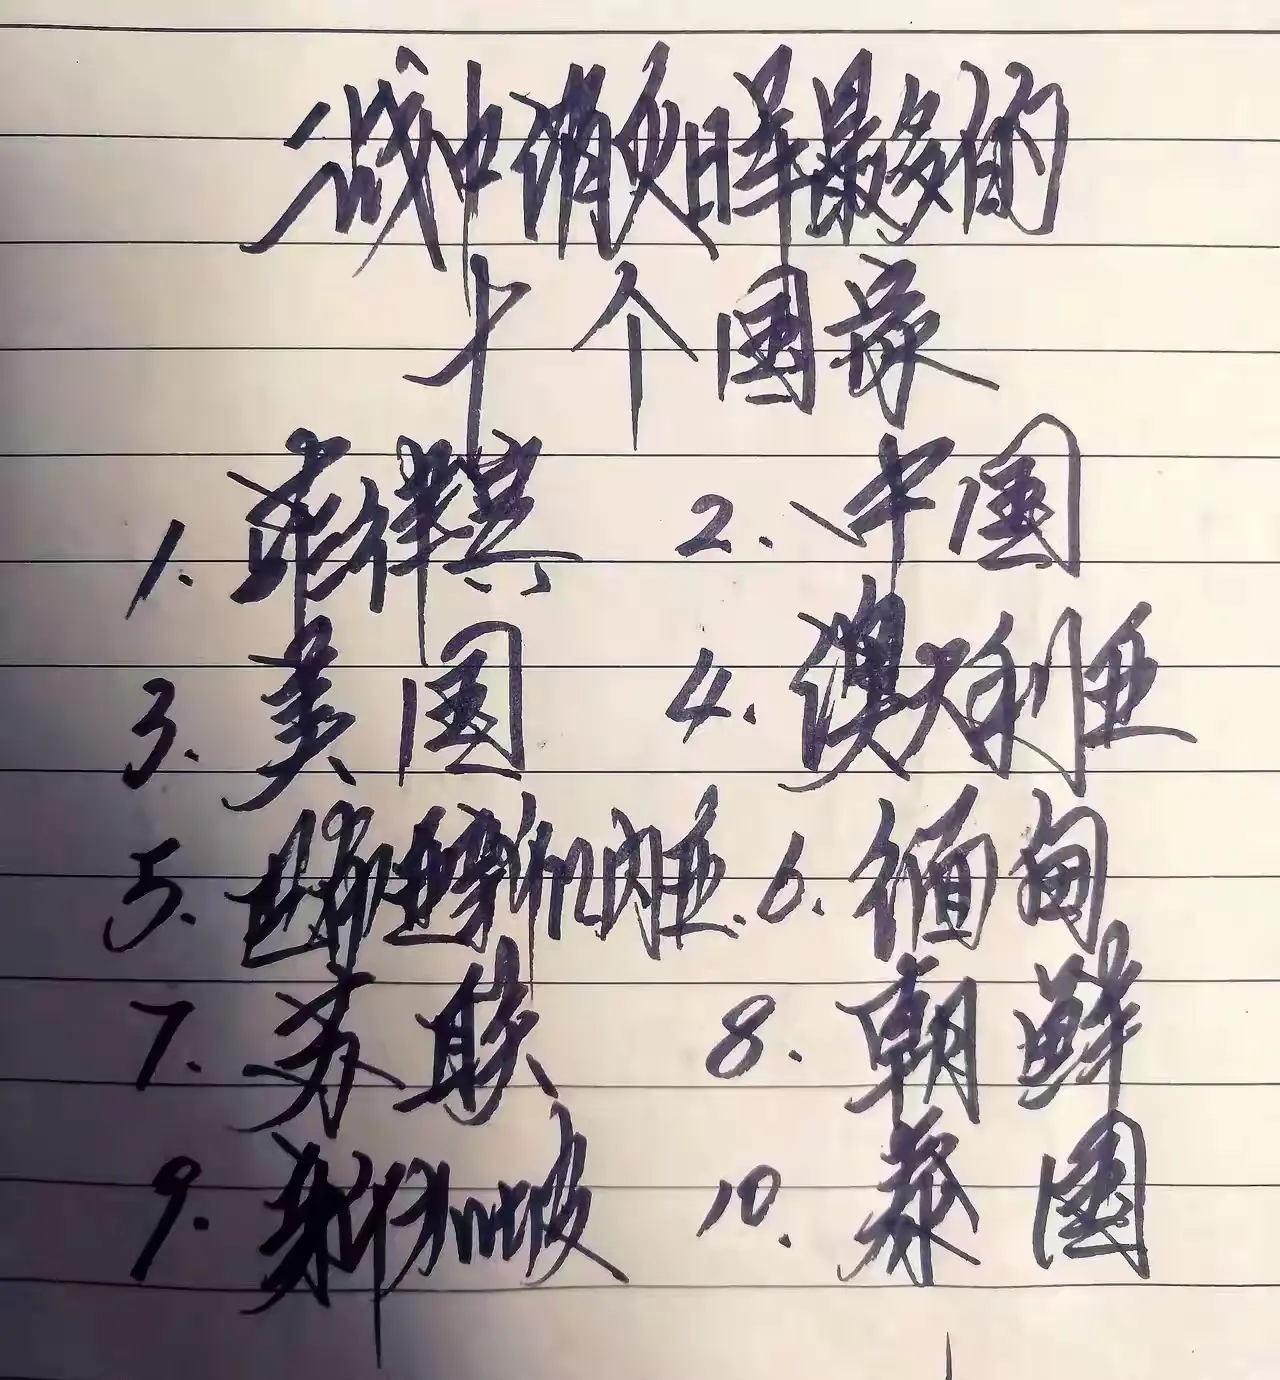 二战中消灭日军最多的
十个国家
1. 菲律宾 2. 中国
3. 美国 4. 澳大利亚
5. 巴布亚新几内亚 6. 缅甸
7. 苏联 8. 朝鲜
9. 新加坡 10. 泰国